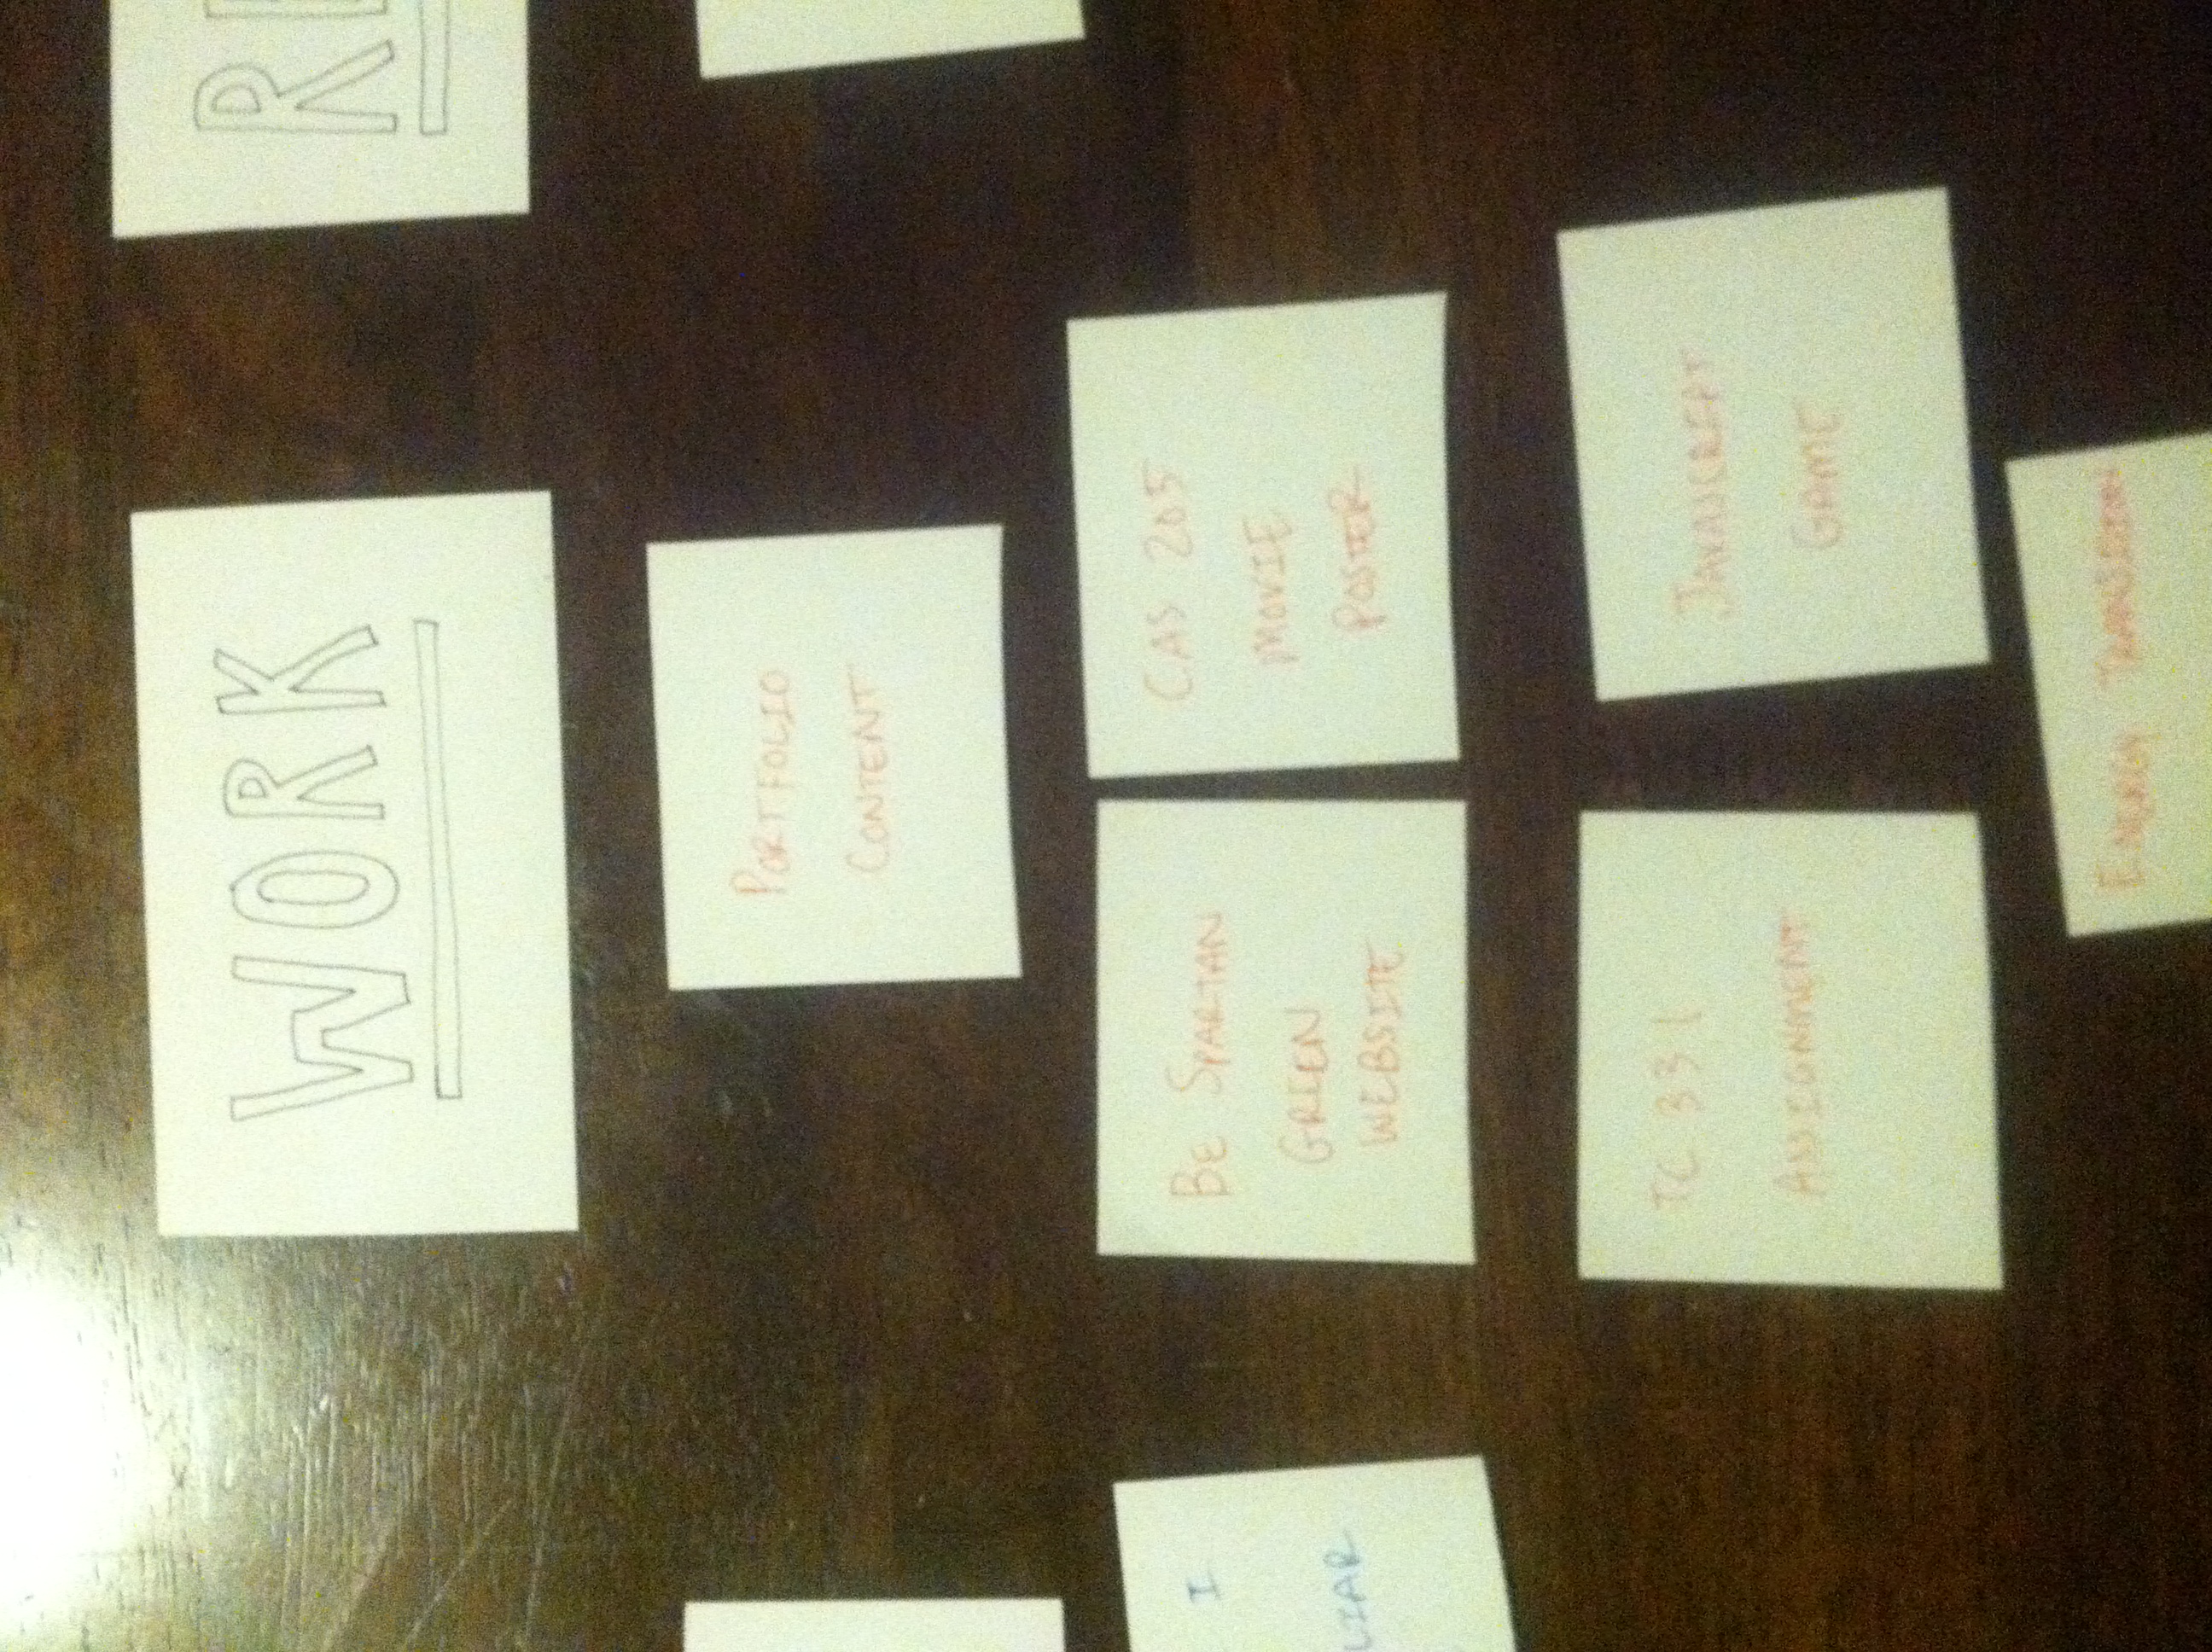 WORK
PORTFOLIO
CONTENT
I
LIAR
BE SPARTAN
GREEN
WEBSITE
CAS 205
MOVIE
POSTER
TC 331
ASSIGNMENT
JAVASCRIPT
GAME
ENERGY TRANSITION